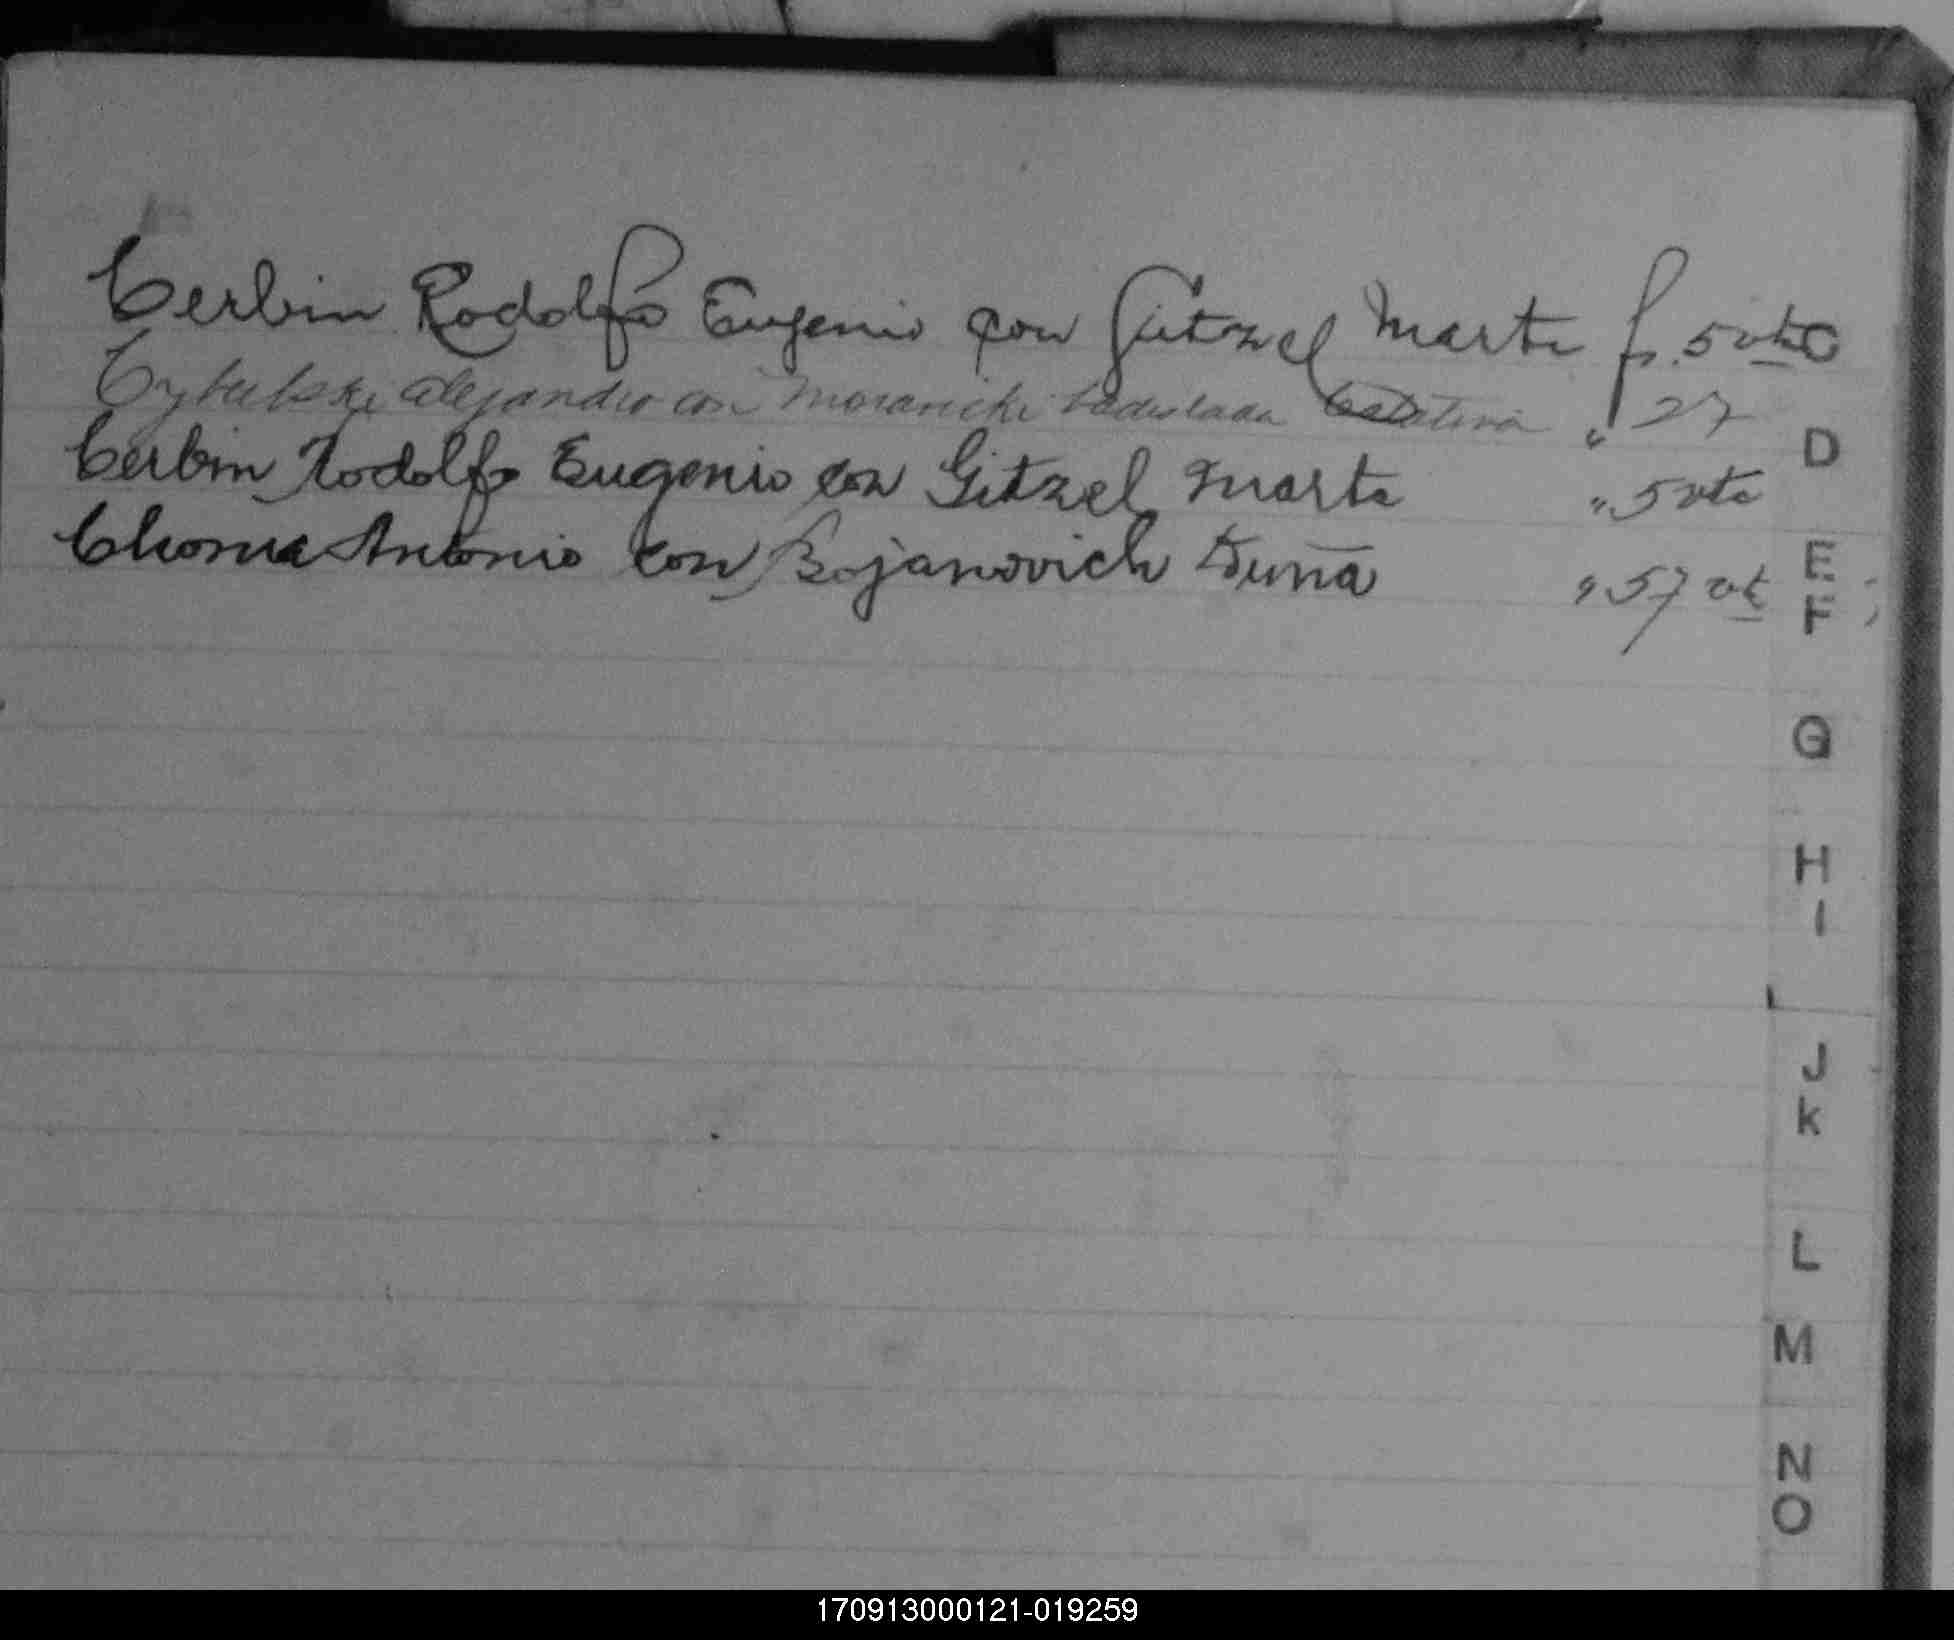 Cerbin Rodolfo Eugenio con Gitzel Marta f. 5 vta C
Cybulski Alejandro con Ladislada Catalina " 27
D
Cerbin Rodolfo Eugenio con Gitzel Marta " 5 vta
Choma Antonio con Bojanovich Duna " 57 vt
E
F
G
H
I
J
K
L
M
N
O
170913000121-019259